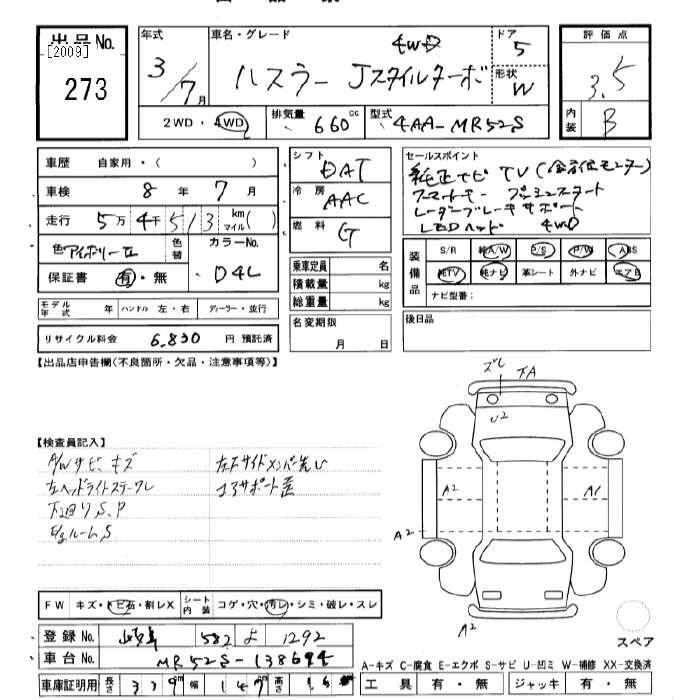 出品No.
[2009]
273
年式 3/7月
車名・グレード 4WD
ハスラー Jスタイルターボ
ドア 5
形状 W
評価点 3.5
内装 B
2WD・4WD
排気量 660cc
型式 4AA-MR52S
車歴 自家用・( )
車検 8年7月
走行 5万4千513 km マイル( )
色 アイボリーⅡ
色替
カラーNo. D4L
保証書 有・無
シフト DAT
冷房 AAC
燃料 G
セールスポイント
純正ナビ TV(全方位モニター)
スマートキー プッシュスタート
レーダーブレーキサポート
LEDヘッド 4WD
装備品
S/R 純A/W P/S P/W ABS
純TV 純ナビ 革シート 外ナビ エアB
ナビ型番:
乗車定員 名
積載量 kg
総重量 kg
名変期限 月 日
後日品
モデル年式 年 ハンドル 左・右 ディーラー・並行
リサイクル料金 6,830 円 預託済
【出品店申告欄(不良箇所・欠品・注意事項等)】
【検査員記入】
A/Wサビ、キズ
左ヘッドライトステーワレ
下廻りS、P
S
左下サイドメンバー
コアサポート
ズレ
下A
U2
A2
A1
A2
A2
スペア
FW キズ・トビ石・割レX
シート内装 コゲ・穴・汚レ・シミ・破レ・スレ
登録No. 岐阜 582 よ 1292
車台No. MR52S-138694
車庫証明用 長さ 339 幅 147 高さ 16
A-キズ C-腐食 E-エクボ S-サビ U-凹ミ W-補修 XX-交換済
工具 有・無 ジャッキ 有・無